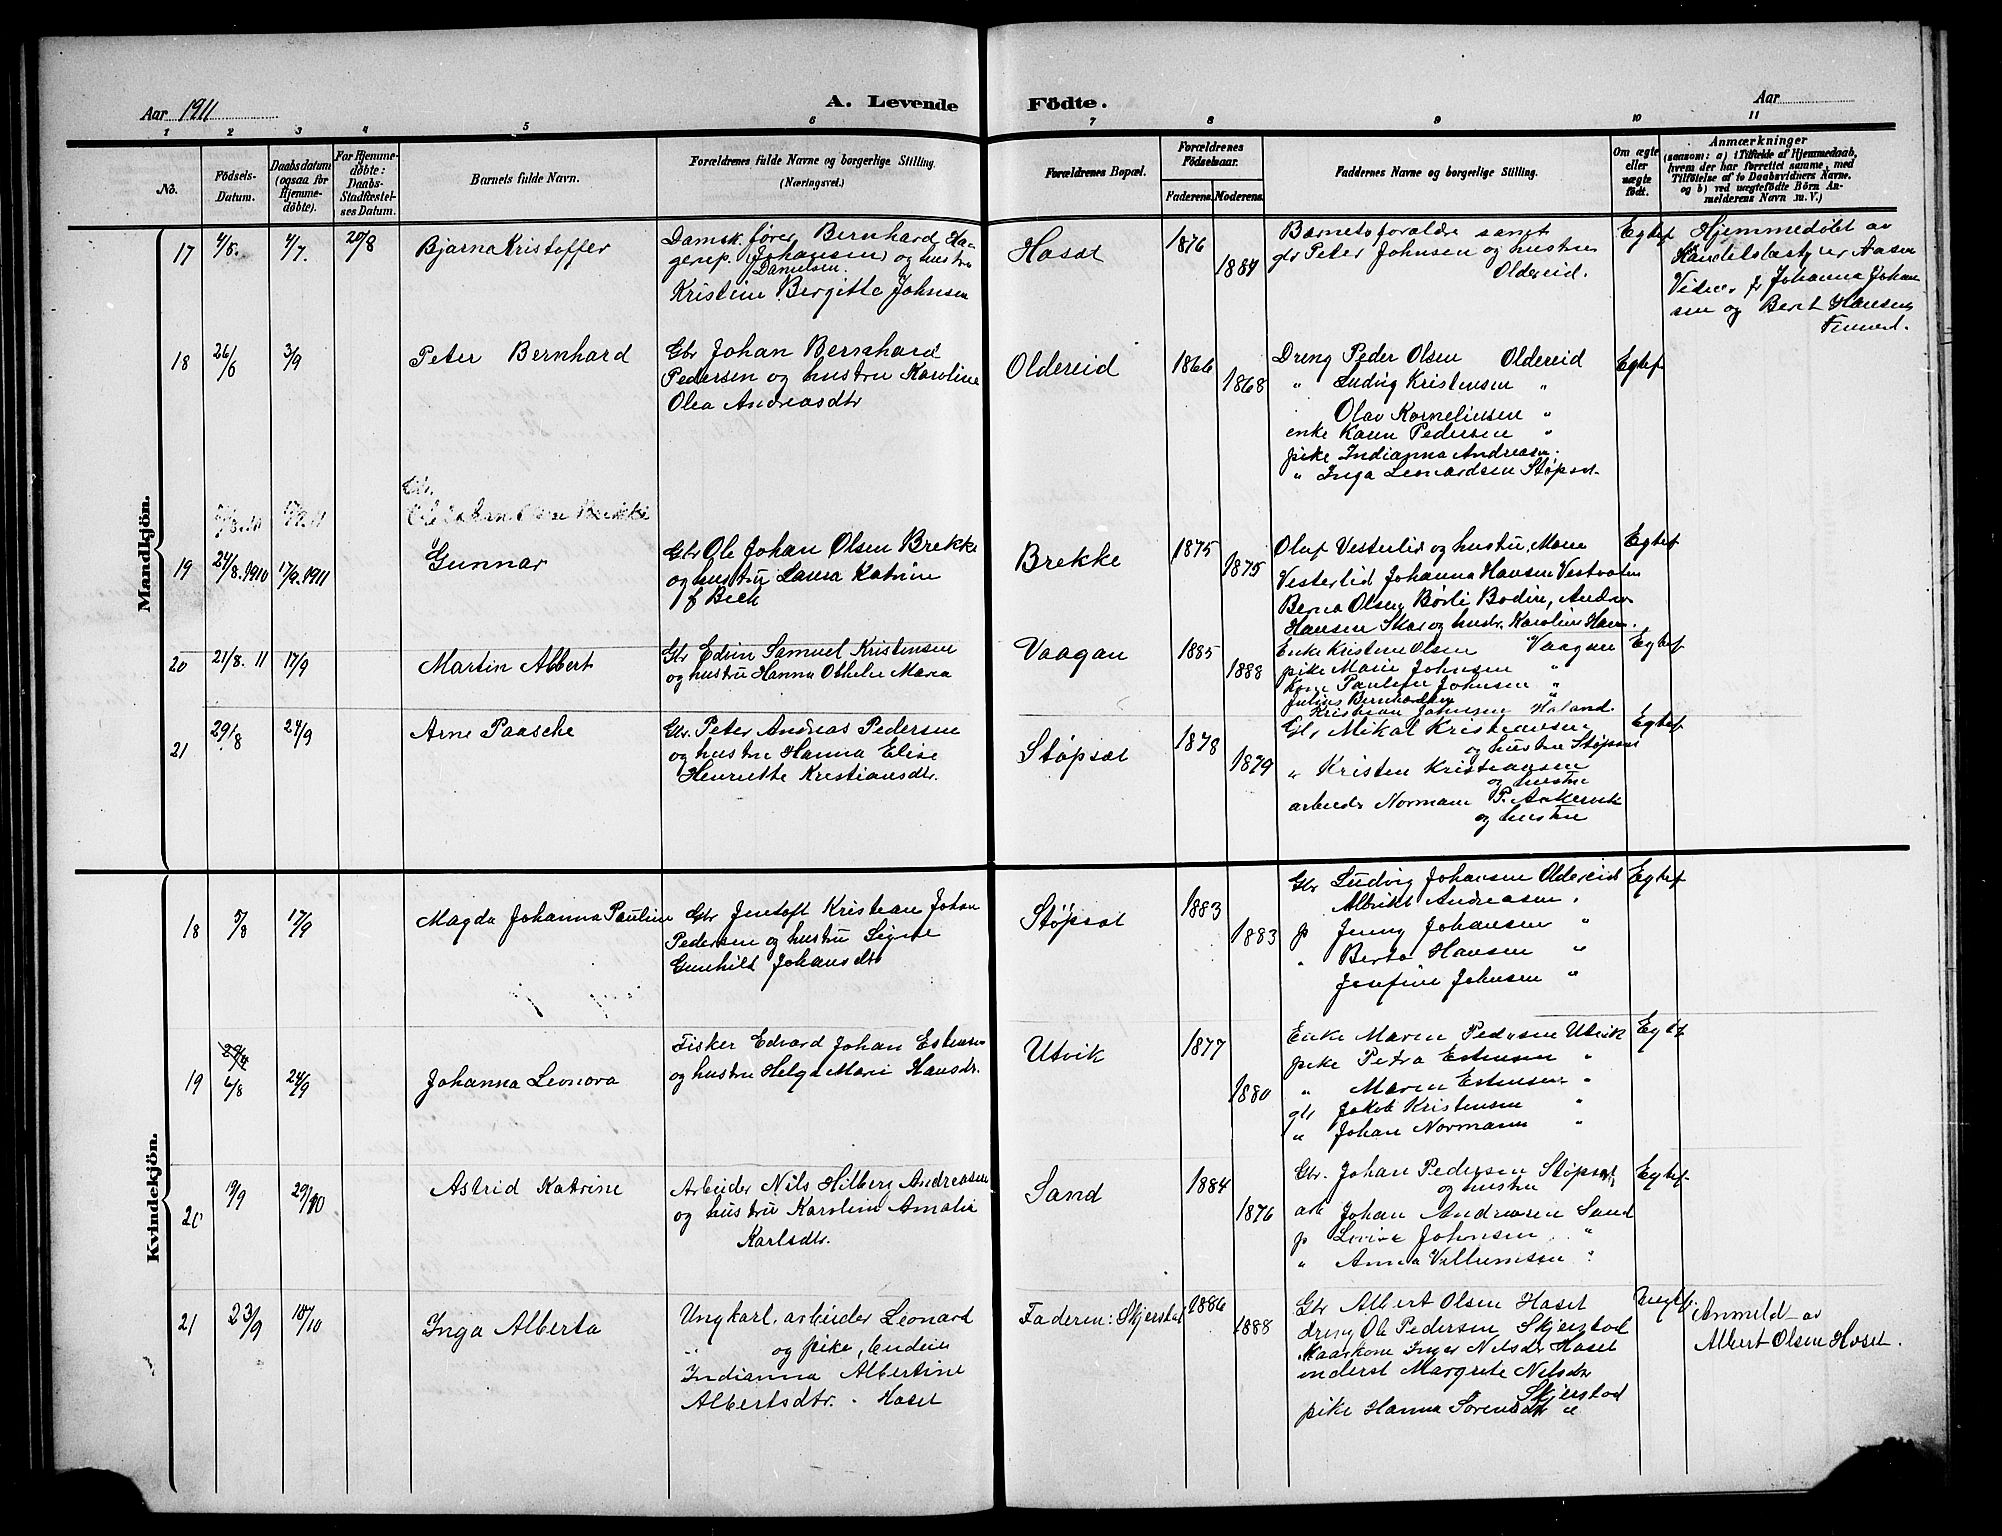 Aar 1911
A. Levende Födte.
Aar
1 2 3 4 5 6 7 8 9 10 11
No.
Födsels-Datum.
Daabsdatum (ogsaa for Hjemmedöbte).
For Hjemmedöbte: Daabs-Stadfæstelses Datum.
Barnets fulde Navn.
Forældrenes fulde Navne og borgerlige Stilling.
(Næringsvei.)
Forældrenes Bopæl.
Forældrenes Födselsaar.
Faderens. Moderens.
Faddernes Navne og borgerlige Stilling.
Om ægte eller uægte födt.
Anmærkninger
(saasom: a) i Tilfælde af Hjemmedaab,
hvem der har forrettet samme, med
Tilföielse af to Daabsvidners Navne.
og b) ved uægtefödte Börn An-
melderens Navn m. V.)
Mandkjön.
17 4/5. 4/7. 20/8 Bjarna Kristoffer
Damsk.fører Bernhard Ha-
gerup (Johansen) og hustru
Danielsen.
Kristine Bergitte Johnsen
Hasæt 1876 1884
Barnets foreldre samt
gbr Peter Johnsen og hustru
Oldereid.
Egtef
Hjemmedøbt av
Handelsbestyrer Aasen
Vidner: pr Johanna Johan
sen og Berit Hansen
18 26/6 3/9 Peter Bernhard
Gbr Johan Bernhard
Pedersen og hustru Karoline
Olea Andreasdtr
Oldereid 1866 1868
Dreng Peder Olsen Oldereid
" Ludvig Kristensen "
Olav Korneliussen "
enke Karen Pedersen "
pike Indianna Andreasen.
" Inga Leonardsen Støpset
Egtef
19 24/8.1910 17/9.1911 Gunnar
Gbr Ole Johan Olsen Brekke
og hustru Laura Katrine
f Beck
Brekke 1875 1875
Olaf Vesterlid og hustru, Marie
Vesterlid Johanna Hansen Vestvatn
Berna Olsen Børli Bodin, Andr.
Hansen Skar og hustr. Karoline Hans.
Egtef
20 21/8. 11 17/9 Martin Albert
Gbr Edvin Samuel Kristensen
og hustru Hanna Othelie Maria
Vaagan 1885 1888
Enke Kristine Olsen Vaagan
pike Marie Johnsen "
Kone Pauline Johnsen "
Julius Bernhardsen "
Kristian Johnsen Haland
Egtef
21 29/8 24/9 Arne Paasche
Gbr. Peter Andreas Pedersen
og hustru Hanna Elise
Henriette Kristiansdtr.
Støpset 1878 1879
Gbr Mikal Kristiansen
og hustru Støpset
" Kristen Kristiansen
og hustru
arbeider Normann P. Ankervik
og hustru
Egtef
Kvindekjön.
18 5/8 17/9 Magda Johanna Pauline
Gbr Jentoft Kristian Johan
Pedersen og hustru Signe
Gunhild Johansdtr
Støpset 1883 1883
Gbr Ludvig Johansen Oldereid
Albrikt Andreasen "
p Jenny Johansen "
" Berta Hansen "
Josefine Johnsen "
Egtef
19 6/8 24/9 Johanna Leonora
Fisker Edvard Johan Estensen
og hustru Helga Marie Hansdtr.
Utvik 1877 1880
Enke Maren Pedersen Utvik
pike Petra Estensen "
" Maren Estensen "
gbr Jakob Kristensen "
" Johan Normann "
Egtef
20 19/9 29/10 Astrid Katrine
Arbeider Nils Hilberg Andreasen
og hustru Karoline Amalie
Karlsdtr.
Sand 1884 1876
Gbr. Johan Pedersen Støpset
og hustru
arb Johan Andreasen Sand
p Lovise Johnsen "
" Anna Villumsen "
Egtef
21 23/9 18/10 Inga Alberta
Ungkarl, arbeider Leonard
og pike,
Indianna Albertine
Albertsdtr. Haset
Faderen: Skjerstad 1886 1888
Gbr Albert Olsen Haset
dreng Ole Pedersen Skjerstad
Kaarkone Inger Nilsdtr Haset
inderst Margrete Nilsdtr
Skjerstad
pike Hanna Sørensdtr "
Uegtef.
Anmeld av
Albert Olsen Haset.